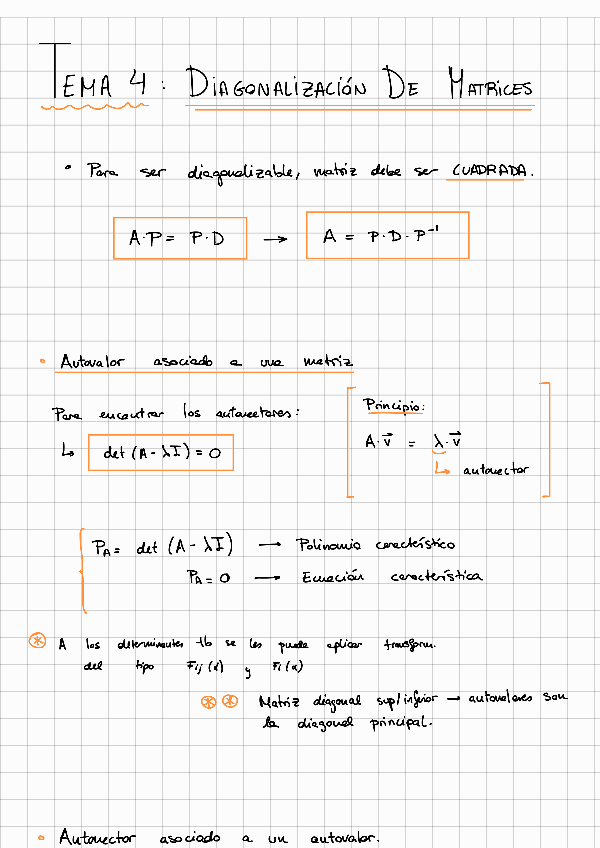 TEMA 4: DIAGONALIZACIÓN DE MATRICES
• Para ser diagonalizable, matriz debe ser CUADRADA.
A·P = P·D → A = P·D·P⁻¹
• Autovalor asociado a una matriz
Para encontrar los autovectores:
↳ det (A - λI) = 0
Principio:
A·v⃗ = λ·v⃗
↳ autovector
P_A = det (A - λI) → Polinomio característico
P_A = 0 → Ecuación característica
* A los determinantes tb se les puede aplicar transform.
del tipo Fij (α) y Fi (α)
** Matriz diagonal sup/inferior → autovalores son
la diagonal principal.
• Autovector asociado a un autovalor.